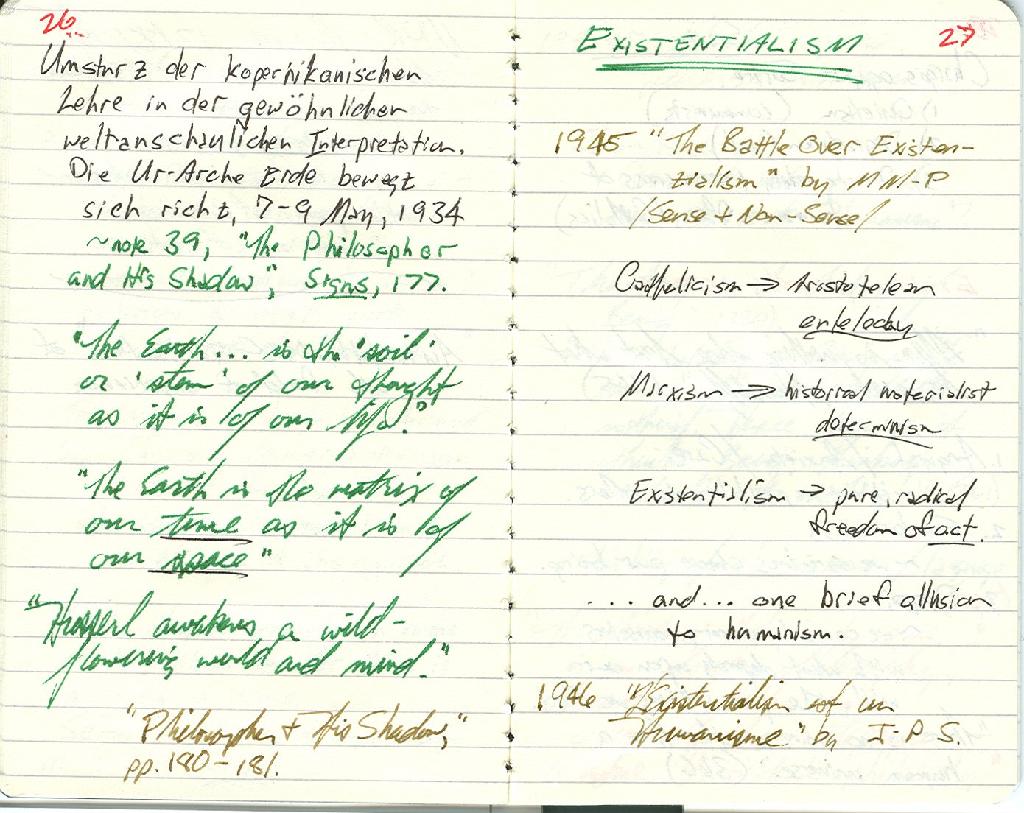 26
Umsturz der kopernikanischen
Lehre in der gewöhnlicher
weltanschaulichen Interpretation.
Die Ur-Arche Erde bewegt
sich nicht, 7-9 May, 1934
~note 39, "The Philosopher
and His Shadow", Signs, 177.
"The Earth... is the 'soil'
or 'stem' of our thought
as it is of our life."
"The Earth is the matrix of
our time as it is of
our space"
"Husserl awakens a wild-
flowering world and mind."
"Philosopher + His Shadow,"
pp. 180-181.
27
EXISTENTIALISM
1945 "The Battle Over Existen-
tialism" by M M-P
/Sense + Non-Sense/
Catholicism → Aristotelean
entelechy
Marxism → historical materialist
determinism
Existentialism → pure, radical
freedom of act.
.... and... one brief allusion
to humanism.
1946 "L'Existentialism est un
Humanisme" by J-P S.